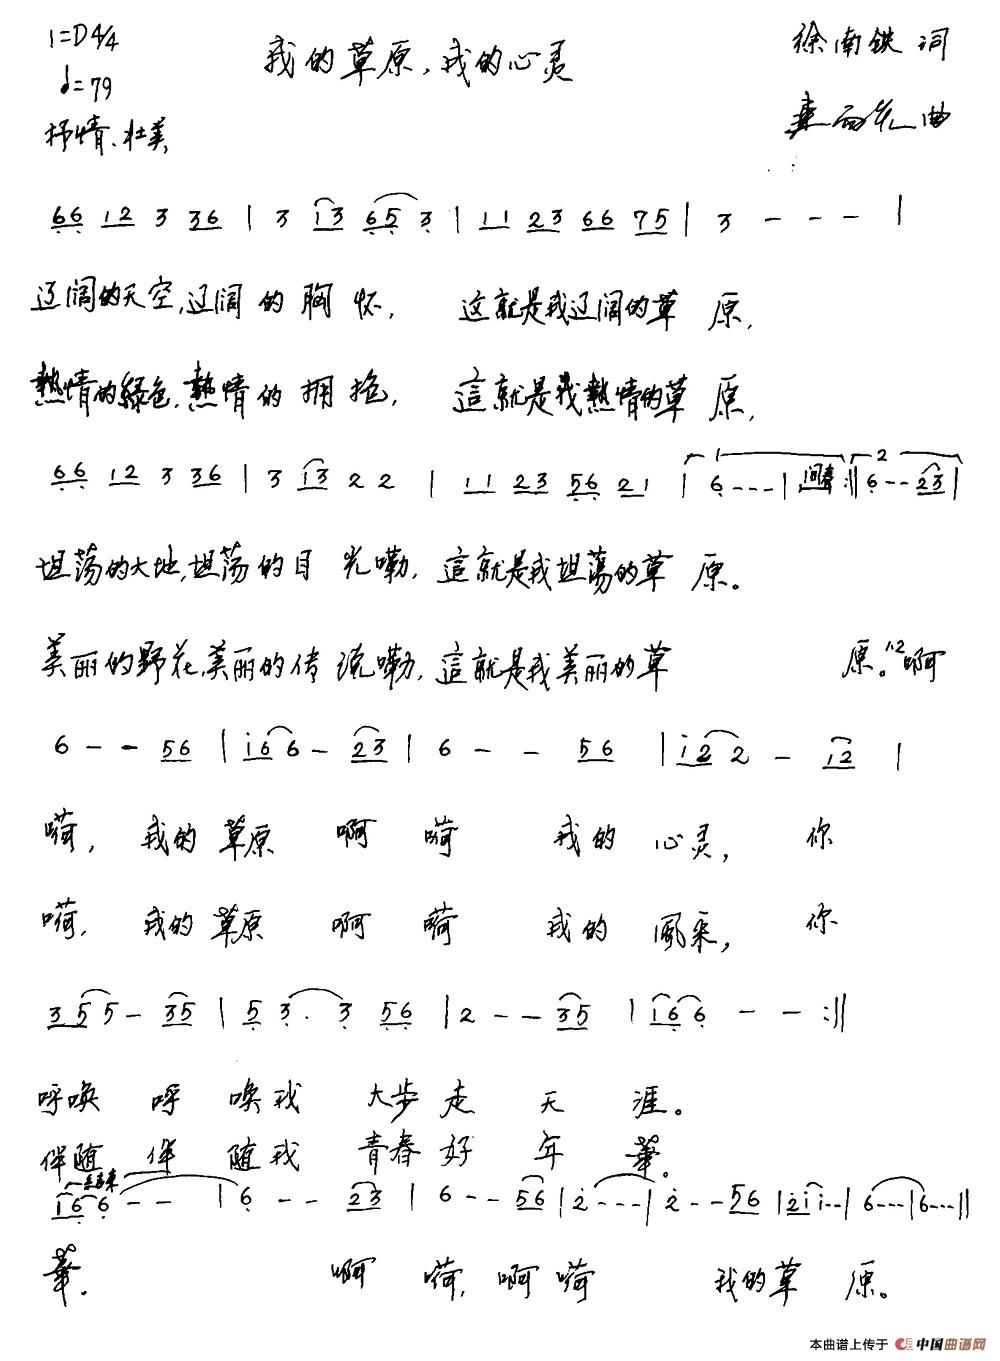 1=D4/4
我的草原，我的心灵
徐南铁 词
♩=79
曲
抒情、壮美
66 12 3 36 | 3 i3 65 3 | 11 23 66 75 | 3 - - - |
辽阔的天空,辽阔 的 胸 怀, 这就是我辽阔的草 原,
熱情的綠色,熱情 的 拥 抱, 這就是我熱情的草 原,
66 12 3 36 | 3 13 2 2 | 11 23 56 21 | 1 6 - - - | 间奏 :‖ 2 6 - - 23 |
坦荡的大地,坦荡 的目 光嘞, 這就是我坦荡的草 原。
美丽的野花,美丽的传 说嘞, 這就是我美丽的草 原。1.2 啊
6 - - 56 | i6 6 - 23 | 6 - - 56 | i2 2 - 12 |
嗬, 我的 草原 啊 嗬 我的 心灵, 你
嗬, 我的 草原 啊 嗬 我的 風采, 你
3 5 5 - 35 | 5 3 · 3 56 | 2 - - 35 | 16 6 - - :‖
呼唤 呼 唤我 大步 走 天 涯。
伴随 伴 随我 青春 好 年 華.
结束
16 6 - - | 6 - - 23 | 6 - - 56 | 2 - - - | 2 - - 56 | 2i i - - | 6 - - - | 6 - - - ‖
華. 啊 嗬, 啊 嗬 我的草 原。
本曲谱上传于 中国曲谱网